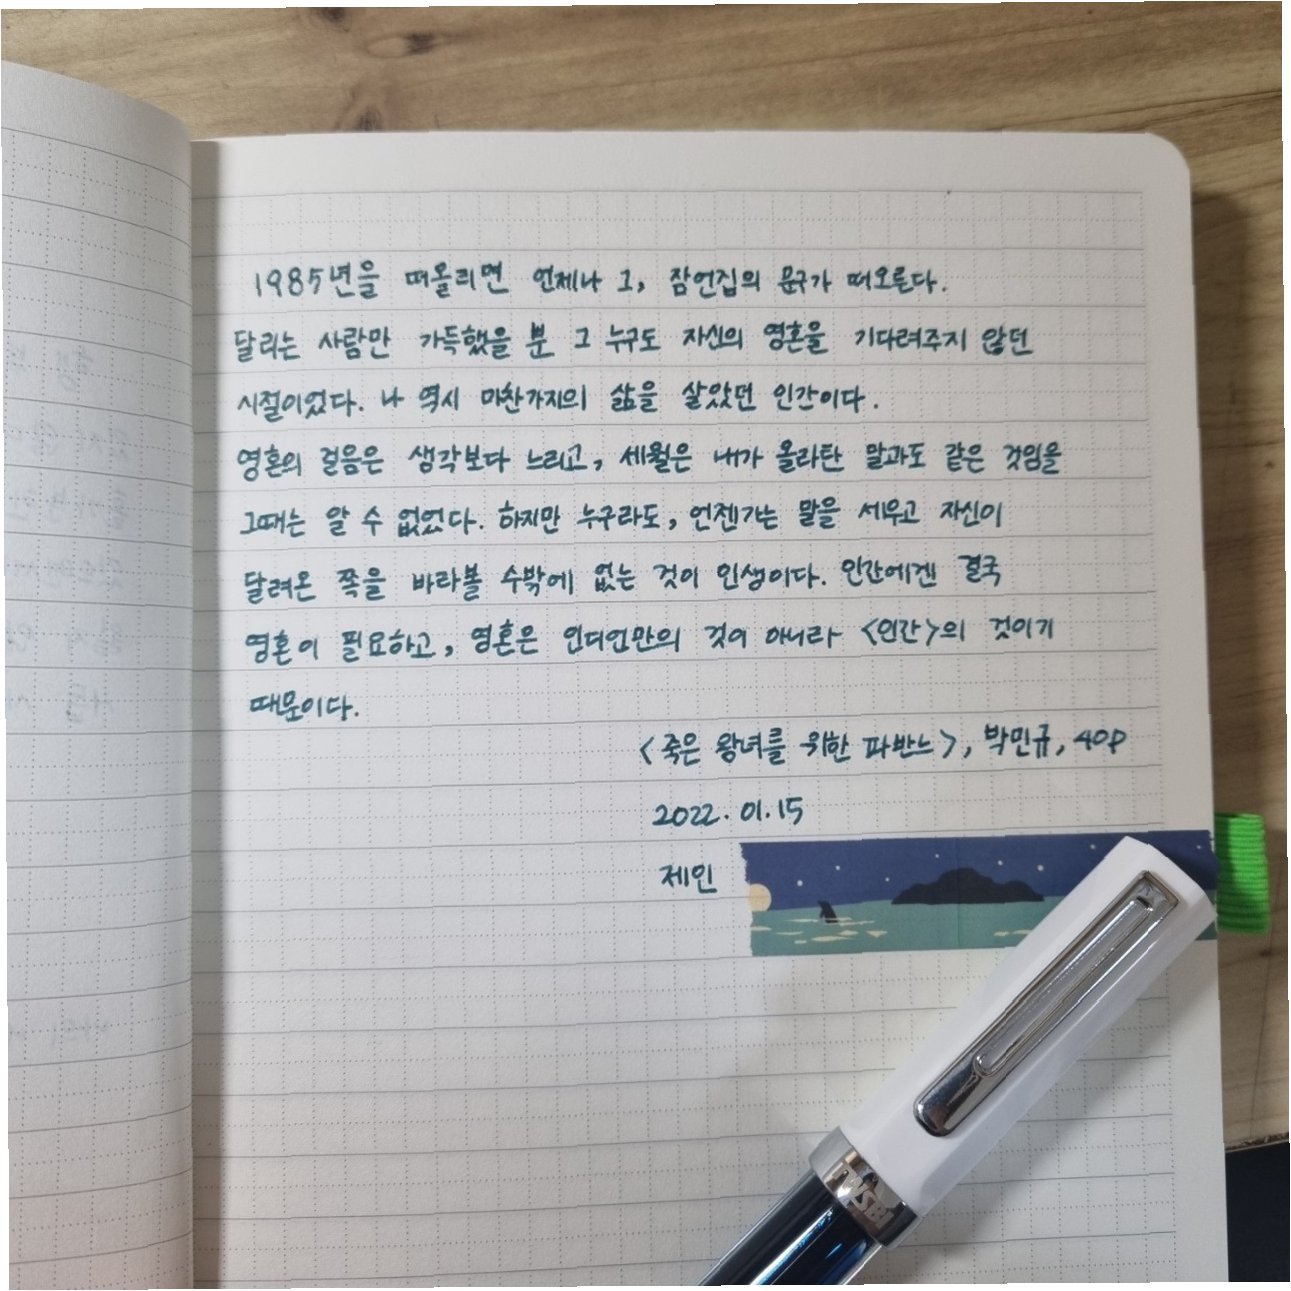 1985년을 떠올리면 언제나 그, 잠언집의 문구가 떠오른다.
달리는 사람만 가득했을 뿐 그 누구도 자신의 영혼을 기다려주지 않던
시절이었다. 나 역시 마찬가지의 삶을 살았던 인간이다.
영혼의 걸음은 생각보다 느리고, 세월은 내가 올라탄 말과도 같은 것임을
그때는 알 수 없었다. 하지만 누구라도, 언젠가는 말을 세우고 자신이
달려온 쪽을 바라볼 수밖에 없는 것이 인생이다. 인간에겐 결국
영혼이 필요하고, 영혼은 인디언만의 것이 아니라 <인간>의 것이기
때문이다.
<죽은 왕녀를 위한 파반느>, 박민규, 40p
2022. 01. 15
제인
TWSBI